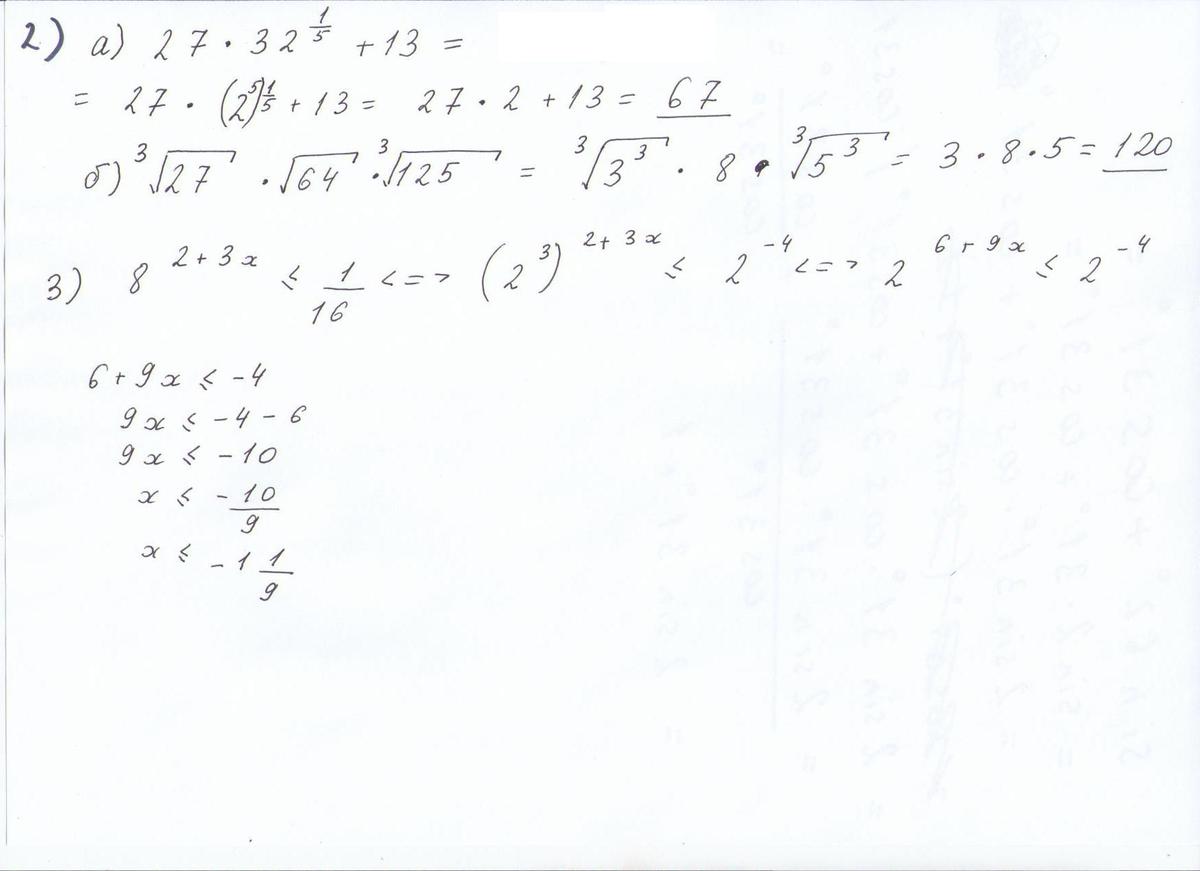 2) а) 27 · 32^(1/5) + 13 =
= 27 · (2^5)^(1/5) + 13 = 27 · 2 + 13 = 67
б) ∛27 · √64 · ∛125 = ∛3^3 · 8 · ∛5^3 = 3 · 8 · 5 = 120
3) 8^(2+3x) ≤ 1/16 <=> (2^3)^(2+3x) ≤ 2^(-4) <=> 2^(6+9x) ≤ 2^(-4)
6 + 9x ≤ -4
9x ≤ -4 - 6
9x ≤ -10
x ≤ -10/9
x ≤ -1 1/9